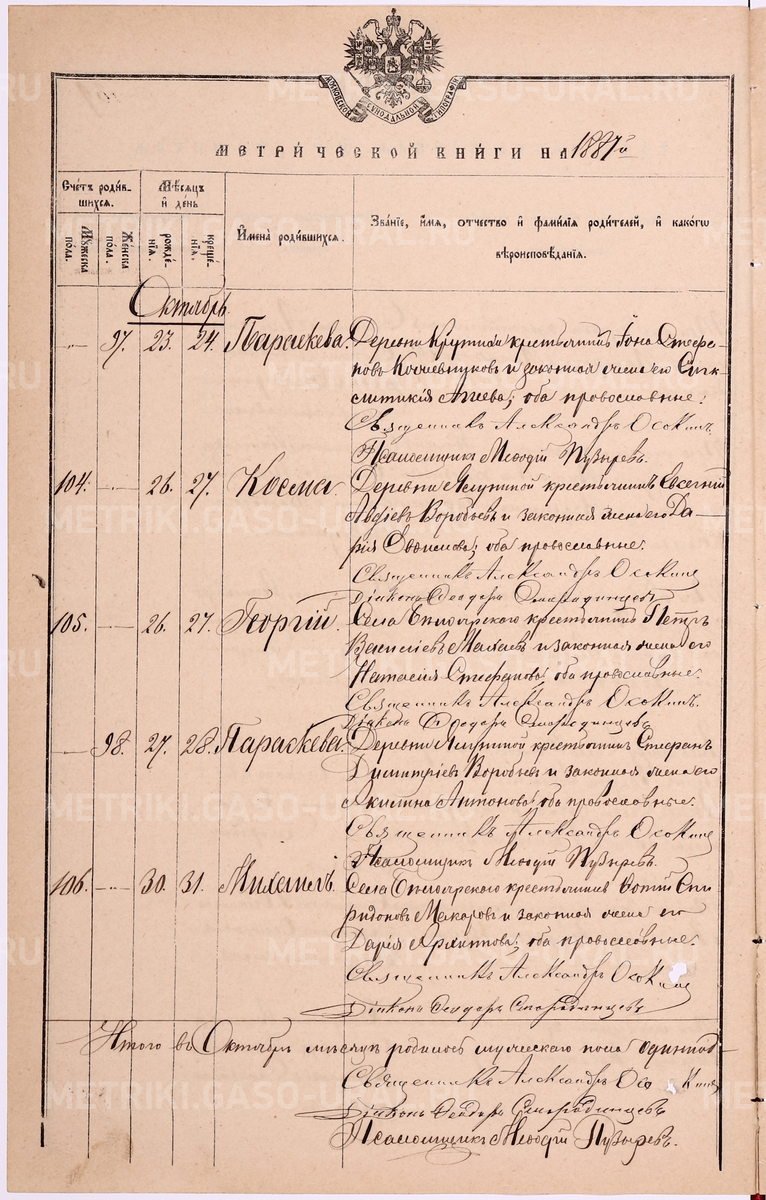 МОСКОВСКОЙ СИНОДАЛЬНОЙ ТИПОГРАФІИ
МЕТРИ́ЧЕСКОЙ КНИ́ГИ НА 1887й
Счетъ роди́вшихся.
Мѣсяцъ и день
Имена̀ роди́вшихся.
Зва́ніе, и́мя, о́тчество и фами́лія роди́телей, и како́го
вѣроисповѣ́данія.
Мꙋжеска по́ла.
Же́нска по́ла.
рожде́нія.
креще́нія.
Октябрь.
97. 23. 24. Параскева. Деревни Крутихи крестьянинъ Іона Стефа-
новъ и законная жена его
оба православные.
Священникъ Александръ Осокинъ.
Псаломщикъ Меѳодій Пузыревъ.
104. 26. 27. Косма. Деревни крестьянинъ Евгеній
Воробьевъ и законная жена его Да-
рія оба православные.
Священникъ Александръ Осокинъ
Діаконъ Ѳеодоръ Смородинцевъ
105. 26. 27. Георгій. Села крестьянинъ Петръ
Василіевъ и законная жена его
Наталія Стефанова; оба православные.
Священникъ Александръ Осокинъ.
Діаконъ Ѳеодоръ Смородинцевъ
98. 27. 28. Параскева. Деревни крестьянинъ Стефанъ
Димитріевъ Воробьевъ и законная жена его
Акилина Антонова; оба православные.
Священникъ Александръ Осокинъ
Псаломщикъ Меѳодій Пузыревъ.
106. 30. 31. Михаилъ. Села крестьянинъ Фотій Спи-
ридоновъ Макаровъ и законная жена его
Дарія Архипова; оба православные.
Священникъ Александръ Осокинъ
Діаконъ Ѳеодоръ Смородинцевъ
Итого въ Октябрѣ мѣсяцѣ родилось мужескаго пола одиннад-
Священникъ Александръ Осокинъ
Діаконъ Ѳеодоръ Смородинцевъ
Псаломщикъ Меѳодій Пузыревъ.
METRIKI.GASO-URAL.RU